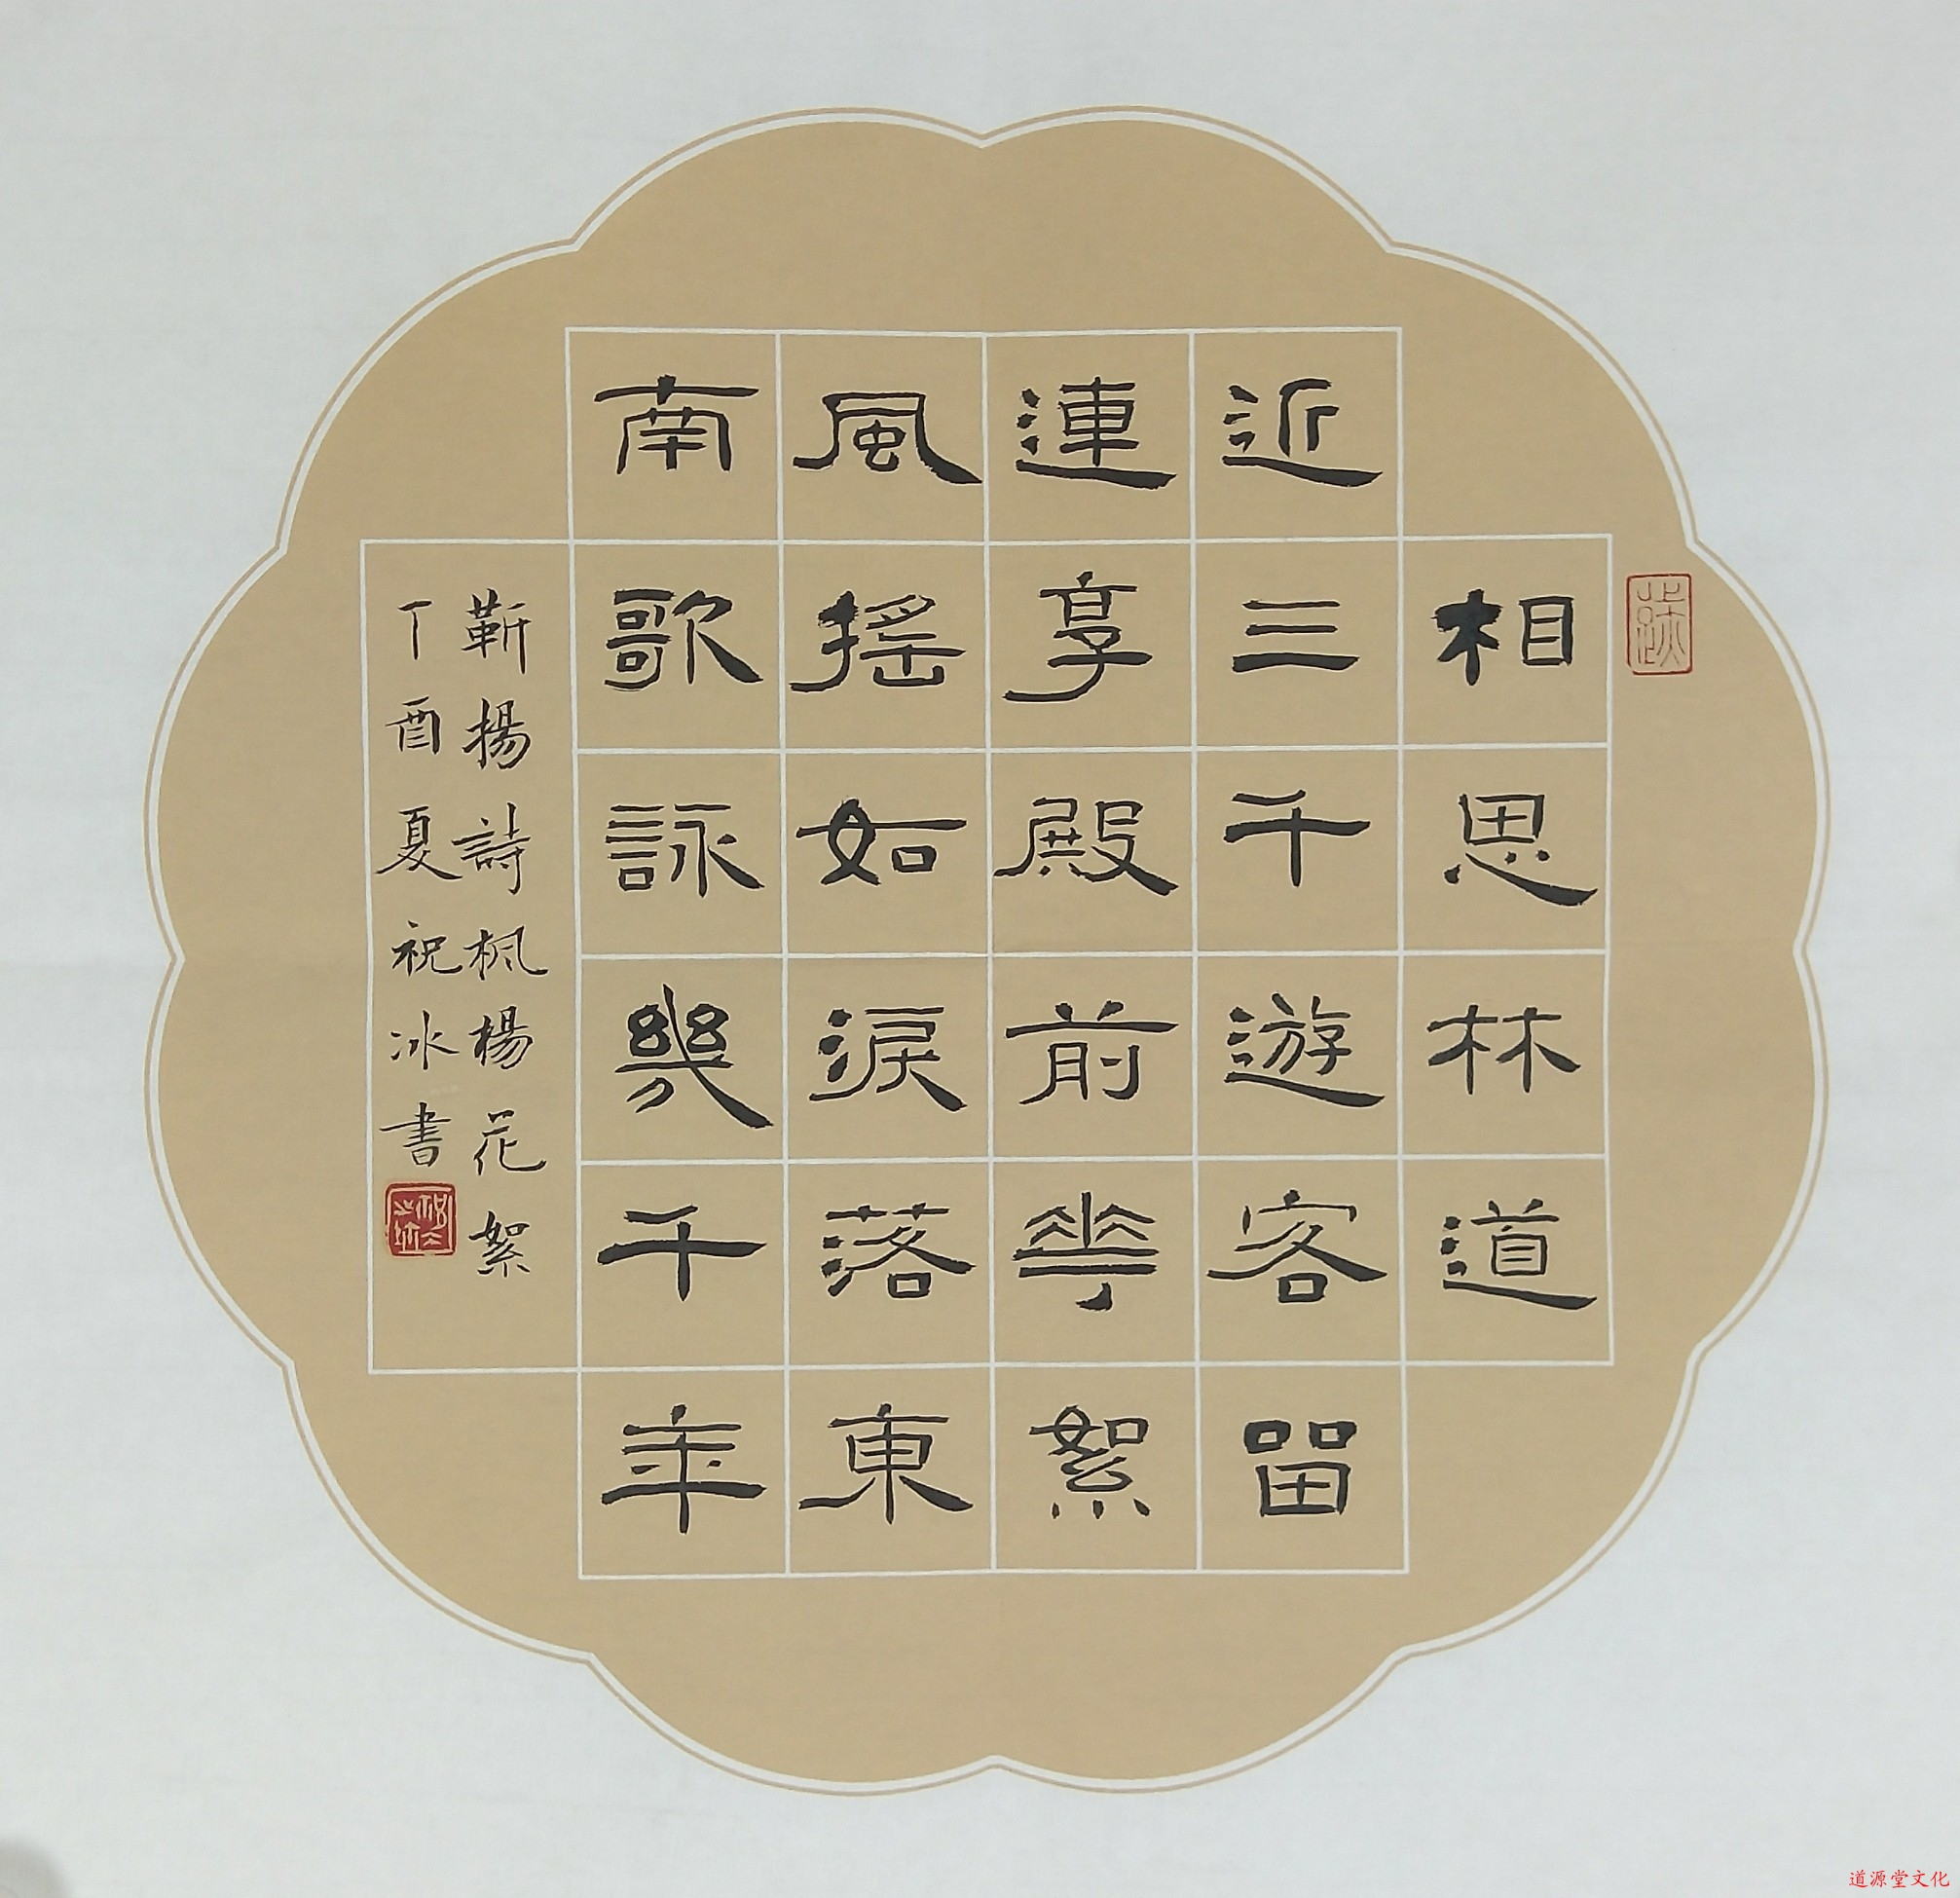 相思林道
近三千遊客留
連享殿前華絮
風搖如淚落東
南歌詠幾千年
靳揚詩楓楊花絮
丁酉夏祝冰書
道源堂文化